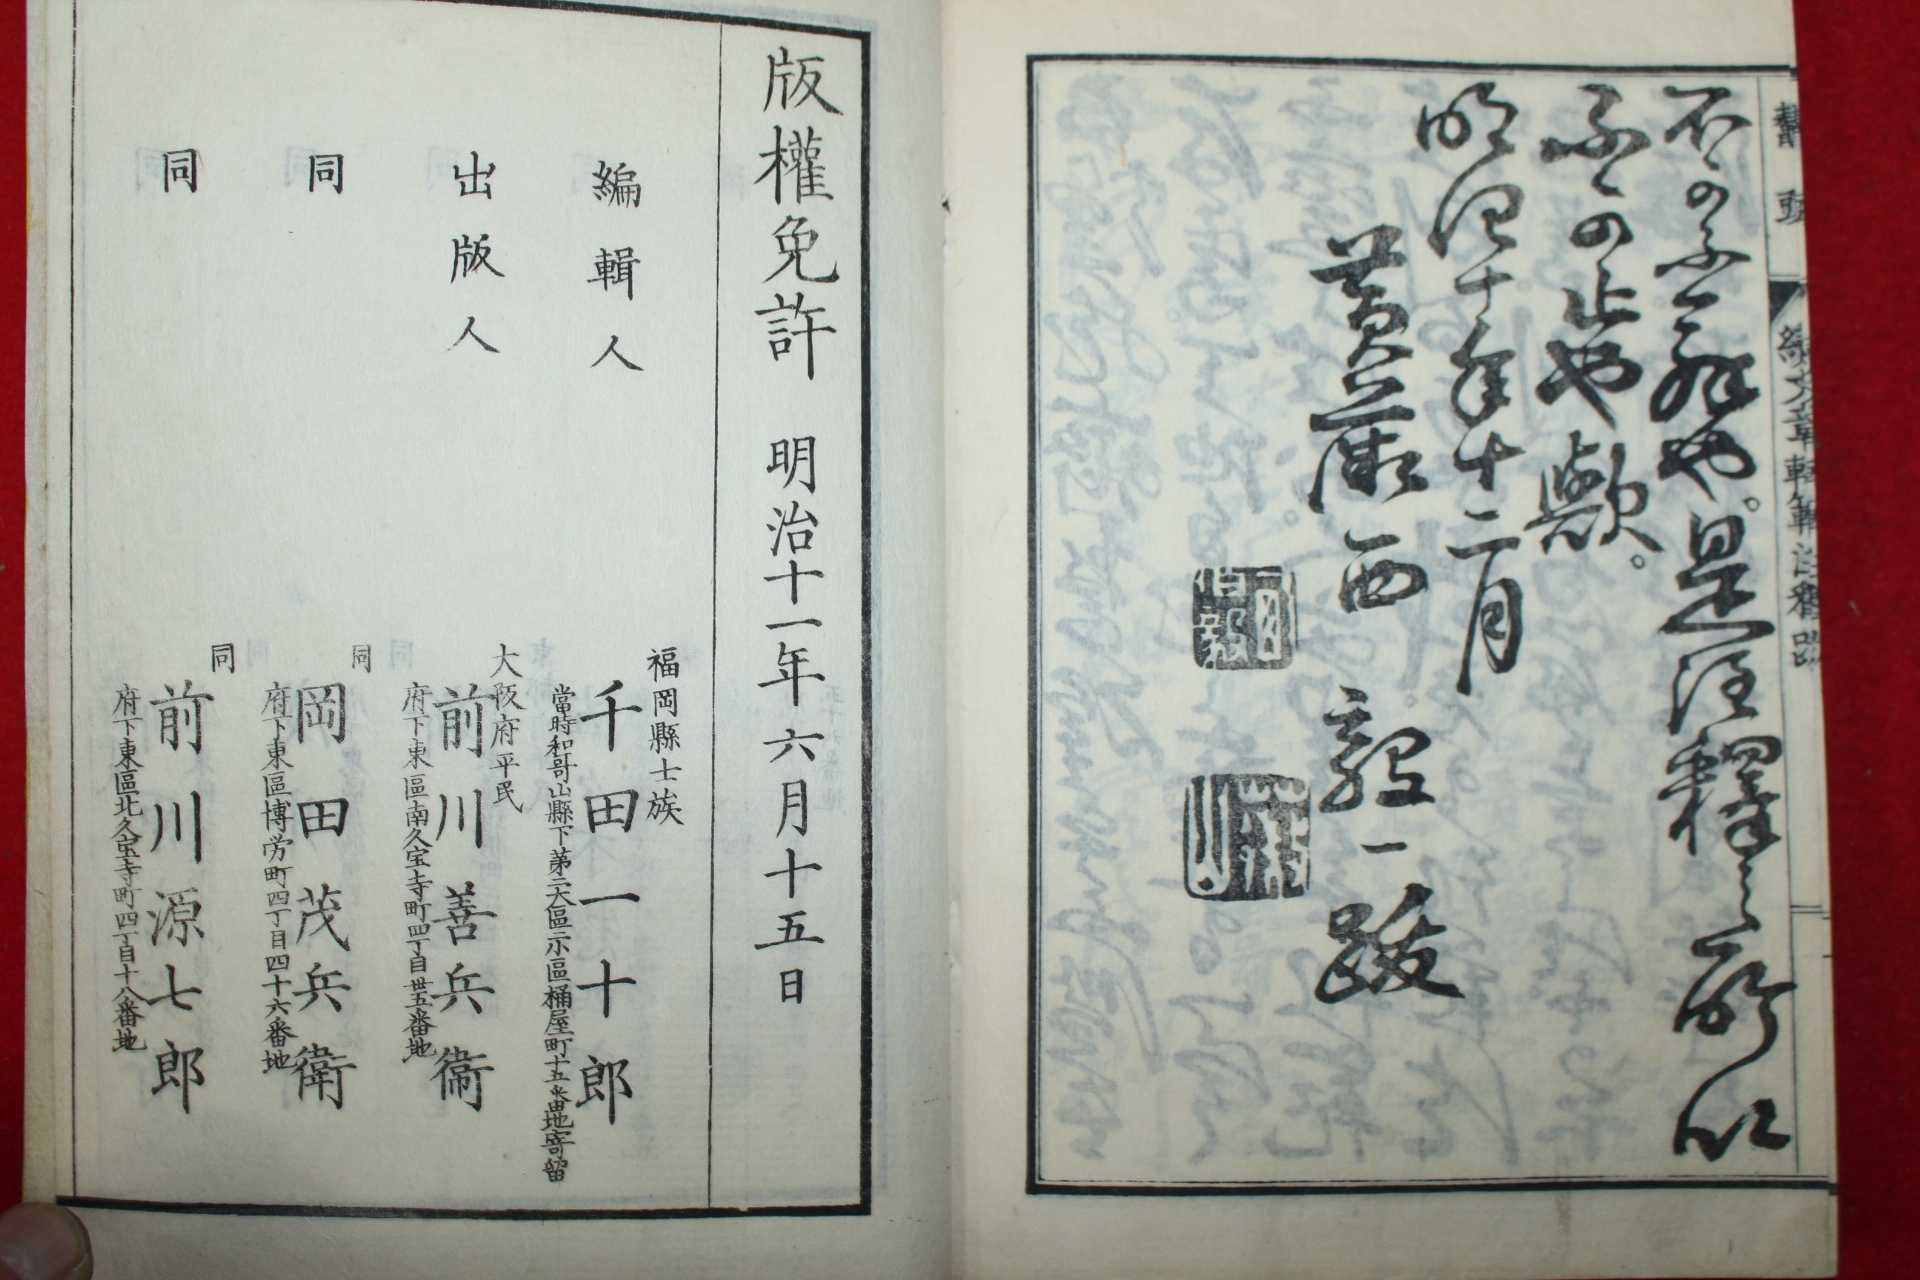 續文章軌範注釋跋
不可不解也。是注釋之所以
不可止也歟。
明治十年十二月
黄薇 西 毅一跋
版權免許 明治十一年六月十五日
福岡縣士族
編輯人 千田一十郎
當時和哥山縣下第二大區二小區桶屋町十五番地寄留
大阪府平民
出版人 前川善兵衞
府下東區南久宝寺町四丁目卅五番地
同
同 岡田茂兵衞
府下東區博労町四丁目四十六番地
同
同 前川源七郎
府下東區北久宝寺町四丁目十八番地